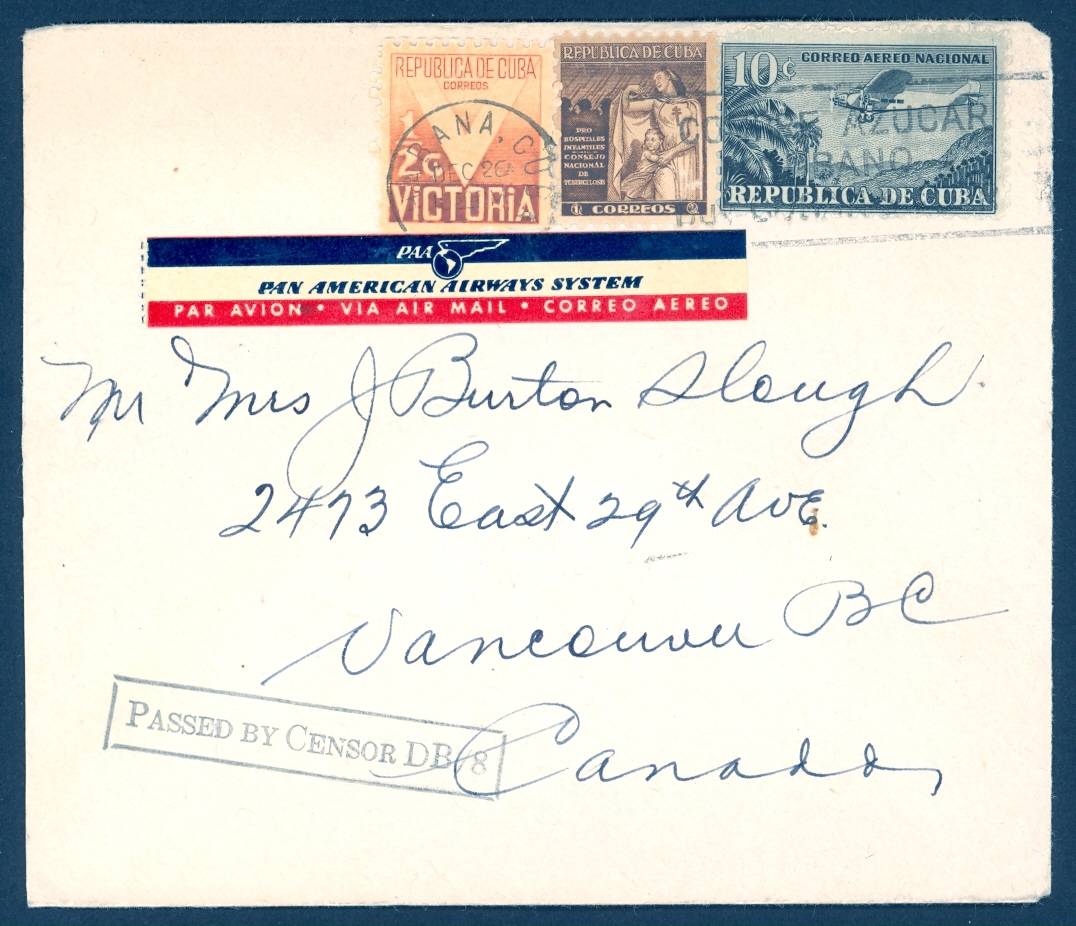 REPUBLICA DE CUBA
CORREOS
1/2¢
VICTORIA
REPUBLICA DE CUBA
PRO
HOSPITALES
INFANTILES
CONSEJO
NACIONAL
DE
TUBERCULOSIS
1 CORREOS
10¢ CORREO AEREO NACIONAL
REPUBLICA DE CUBA
DEC 26
AZUCAR
PAA
PAN AMERICAN AIRWAYS SYSTEM
PAR AVION • VIA AIR MAIL • CORREO AEREO
Mr Mrs J Burton Slough
2473 East 29th Ave.
Vancouver BC
Canada
PASSED BY CENSOR DB/8